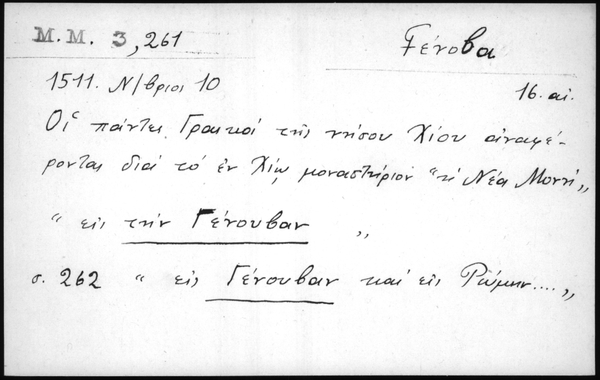 M.M. 3, 261
Γένοβα
1511. Ν/βριος 10
16. αἰ.
Οἱ πάντες Γραικοὶ τῆς νήσου Χίου ἀναφέ-
ρονται διὰ τὸ ἐν Χίῳ μοναστήριον "ἡ Νέα Μονή"
" εἰς τὴν Γένουβαν "
σ. 262 " εἰς Γένουβαν καὶ εἰς Ρώμην.... "